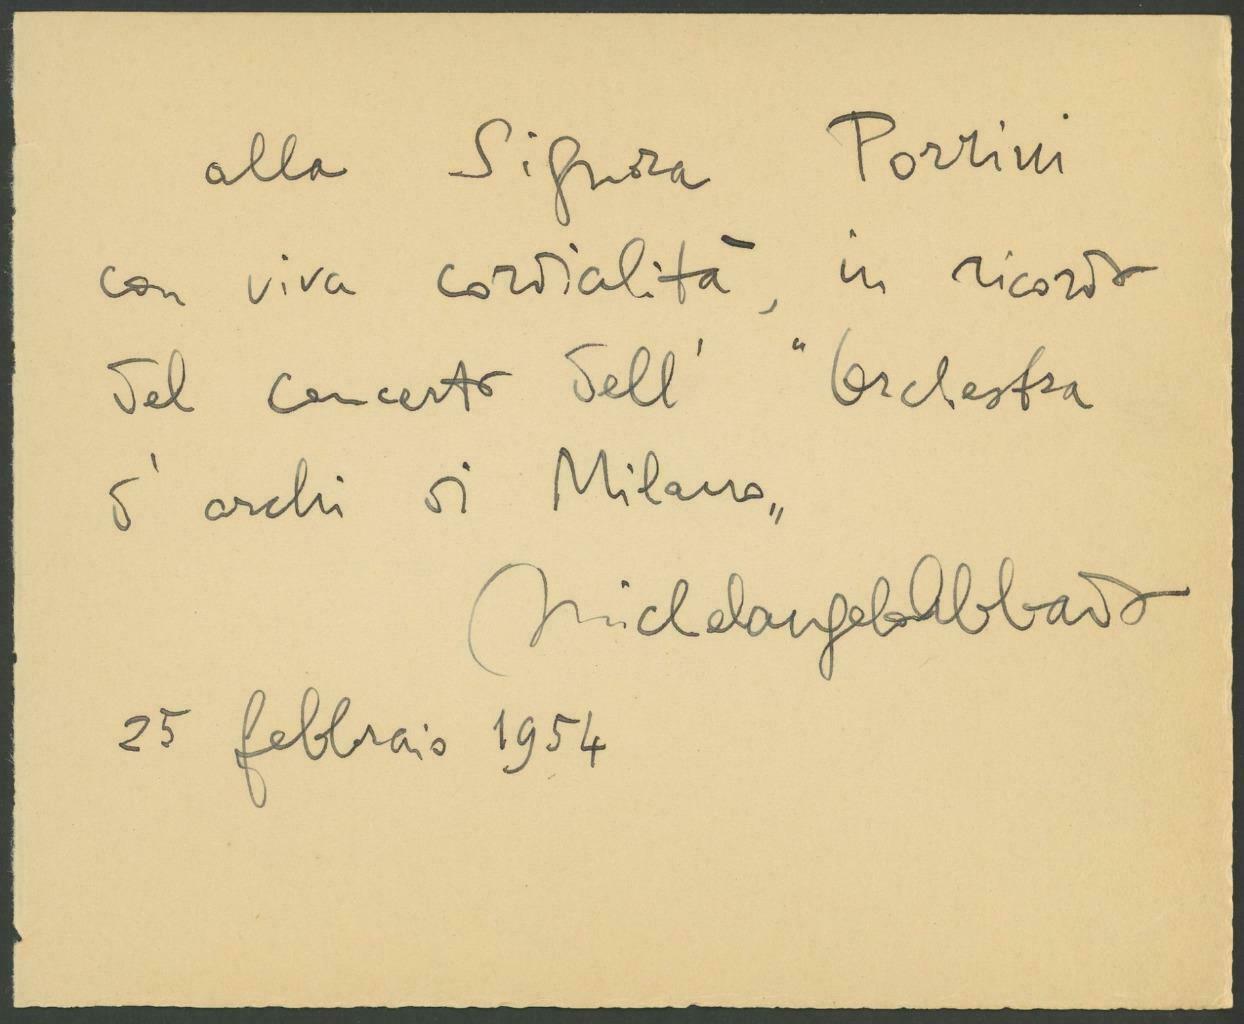 alla Signora Porrini
con viva cordialità, in ricordo
del concerto dell' "Orchestra
d'archi di Milano„
Michelangelo Abbado
25 febbraio 1954